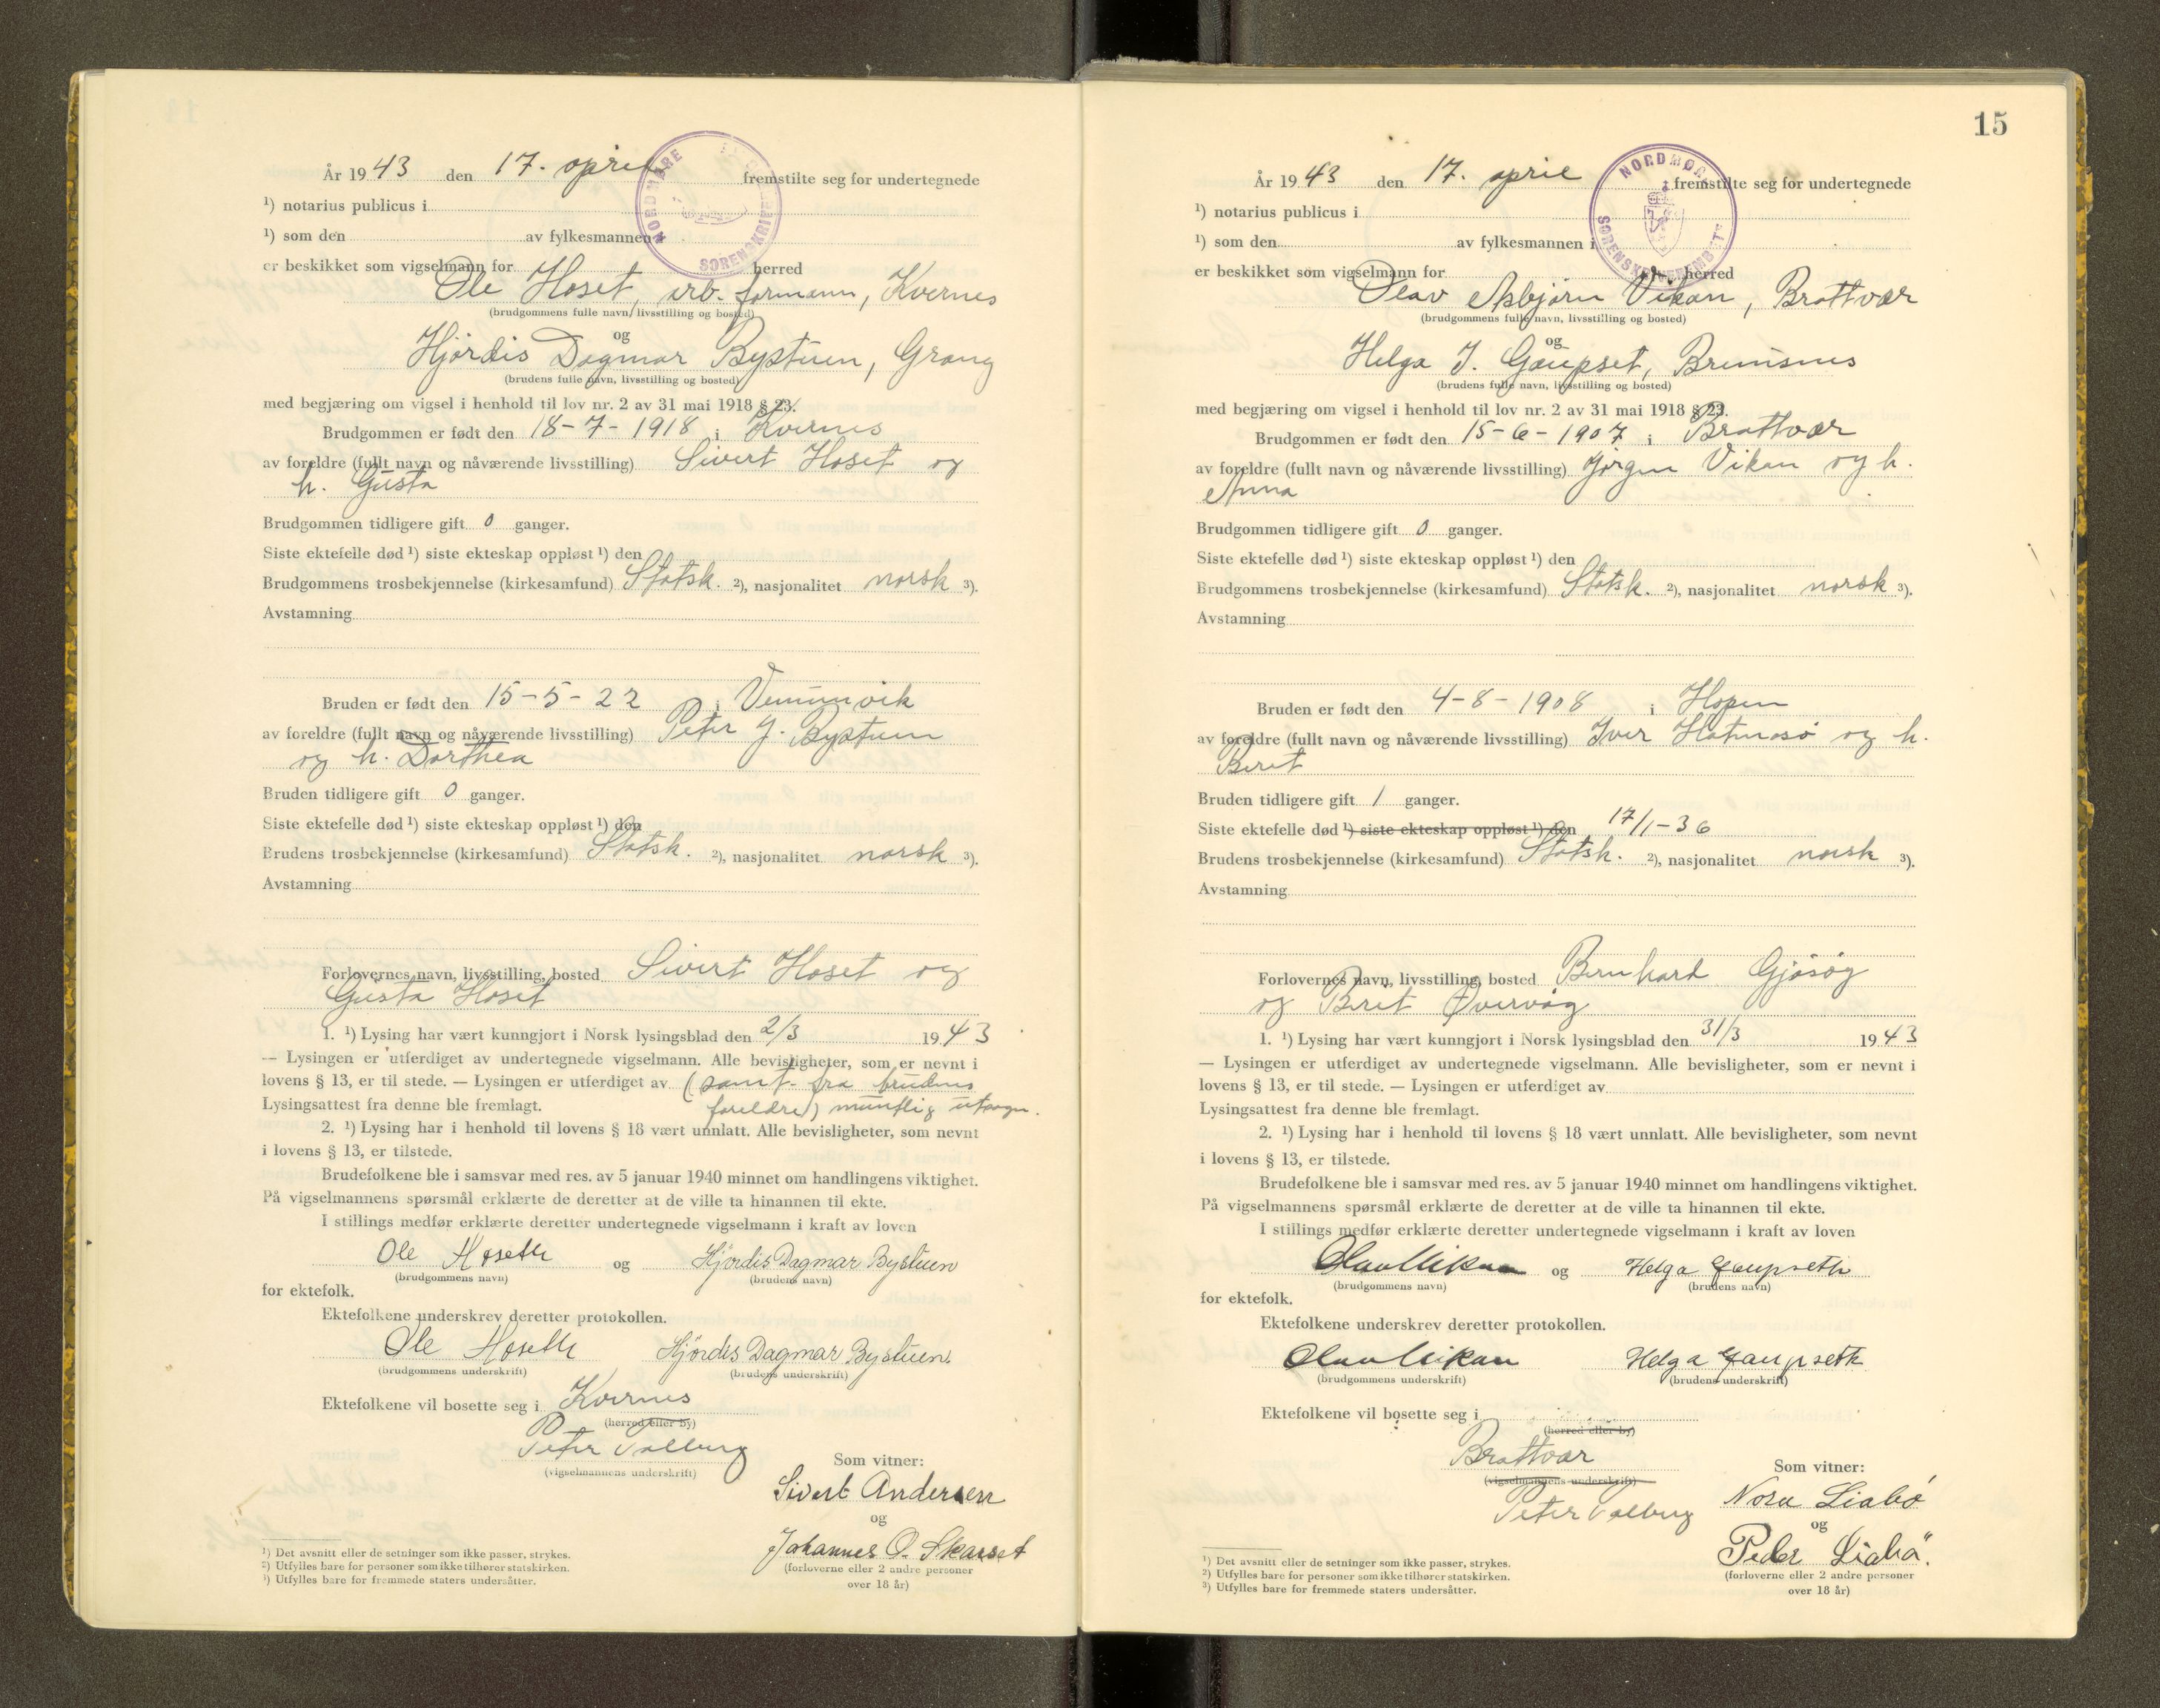 År 1943 den 17. april fremstilte seg for undertegnede
¹) notarius publicus i
¹) som den av fylkesmannen i
er beskikket som vigselmann for herred
Ole Hoset, arb. formann, Kvernes
(brudgommens fulle navn, livsstilling og bosted)
og
Hjördis Dagmar Bystuen, Grong
(brudens fulle navn, livsstilling og bosted)
med begjæring om vigsel i henhold til lov nr. 2 av 31 mai 1918 § 23.
Brudgommen er født den 18-7-1918 i Kvernes
av foreldre (fullt navn og nåværende livsstilling) Sivert Hoset og
h. Gusta
Brudgommen tidligere gift 0 ganger.
Siste ektefelle død ¹) siste ekteskap oppløst ¹) den
Brudgommens trosbekjennelse (kirkesamfund) Statsk. ²), nasjonalitet norsk ³).
Avstamning
Bruden er født den 15-5-22 i Vemundvik
av foreldre (fullt navn og nåværende livsstilling) Peter J. Bystuen
og h. Dorthea
Bruden tidligere gift 0 ganger.
Siste ektefelle død ¹) siste ekteskap oppløst ¹) den
Brudens trosbekjennelse (kirkesamfund) Statsk. ²), nasjonalitet norsk ³).
Avstamning
Forlovernes navn, livsstilling, bosted Sivert Hoset og
Gusta Hoset
1. ¹) Lysing har vært kunngjort i Norsk lysingsblad den 2/3 1943
— Lysingen er utferdiget av undertegnede vigselmann. Alle bevisligheter, som er nevnt i
lovens § 13, er til stede. — Lysingen er utferdiget av (samt. fra brudens
Lysingsattest fra denne ble fremlagt. foreldre)
2. ¹) Lysing har i henhold til lovens § 18 vært unnlatt. Alle bevisligheter, som nevnt
i lovens § 13, er tilstede.
Brudefolkene ble i samsvar med res. av 5 januar 1940 minnet om handlingens viktighet.
På vigselmannens spørsmål erklærte de deretter at de ville ta hinannen til ekte.
I stillings medfør erklærte deretter undertegnede vigselmann i kraft av loven
Ole Hoseth og Hjördis Dagmar Bystuen
(brudgommens navn) (brudens navn)
for ektefolk.
Ektefolkene underskrev deretter protokollen.
Ole Hoseth Hjördis Dagmar Bystuen
(brudgommens underskrift) (brudens underskrift)
Ektefolkene vil bosette seg i Kvernes
(herred eller by)
Peter Solberg
(vigselmannens underskrift)
Som vitner:
Sivert Andersen
og
Johannes O. Skarset
(forloverne eller 2 andre personer
over 18 år)
¹) Det avsnitt eller de setninger som ikke passer, strykes.
²) Utfylles bare for personer som ikke tilhører statskirken.
³) Utfylles bare for fremmede staters undersåtter.
NORDMØRE SORENSKRIVER
15
År 1943 den 17. april fremstilte seg for undertegnede
¹) notarius publicus i
¹) som den av fylkesmannen i
er beskikket som vigselmann for herred
Olav Asbjørn Vikan, Brattvær
(brudgommens fulle navn, livsstilling og bosted)
og
Helga J. Gaupset, Bremsnes
(brudens fulle navn, livsstilling og bosted)
med begjæring om vigsel i henhold til lov nr. 2 av 31 mai 1918 § 23.
Brudgommen er født den 15-6-1907 i Brattvær
av foreldre (fullt navn og nåværende livsstilling) Jørgen Vikan og h.
Anna
Brudgommen tidligere gift 0 ganger.
Siste ektefelle død ¹) siste ekteskap oppløst ¹) den
Brudgommens trosbekjennelse (kirkesamfund) Statsk. ²), nasjonalitet norsk ³).
Avstamning
Bruden er født den 4-8-1908 i Hopen
av foreldre (fullt navn og nåværende livsstilling) Iver Holmasö og h.
Beret
Bruden tidligere gift 1 ganger.
Siste ektefelle død ¹) siste ekteskap oppløst ¹) den 17/1-36
Brudens trosbekjennelse (kirkesamfund) Statsk. ²), nasjonalitet norsk ³).
Avstamning
Forlovernes navn, livsstilling, bosted Bernhard Gjøsøy
og Beret Övervåg
1. ¹) Lysing har vært kunngjort i Norsk lysingsblad den 31/3 1943
— Lysingen er utferdiget av undertegnede vigselmann. Alle bevisligheter, som er nevnt i
lovens § 13, er til stede. — Lysingen er utferdiget av
Lysingsattest fra denne ble fremlagt.
2. ¹) Lysing har i henhold til lovens § 18 vært unnlatt. Alle bevisligheter, som nevnt
i lovens § 13, er tilstede.
Brudefolkene ble i samsvar med res. av 5 januar 1940 minnet om handlingens viktighet.
På vigselmannens spørsmål erklærte de deretter at de ville ta hinannen til ekte.
I stillings medfør erklærte deretter undertegnede vigselmann i kraft av loven
Olav Vikan og Helga Gaupseth
(brudgommens navn) (brudens navn)
for ektefolk.
Ektefolkene underskrev deretter protokollen.
Olav Vikan Helga Gaupseth
(brudgommens underskrift) (brudens underskrift)
Ektefolkene vil bosette seg i
(herred eller by)
Brattvær
(vigselmannens underskrift)
Peter Solberg
Som vitner:
Nora Liabø
og
Peder Liabö.
(forloverne eller 2 andre personer
over 18 år)
¹) Det avsnitt eller de setninger som ikke passer, strykes.
²) Utfylles bare for personer som ikke tilhører statskirken.
³) Utfylles bare for fremmede staters undersåtter.
NORDMØRE SORENSKRIVEREMBETE